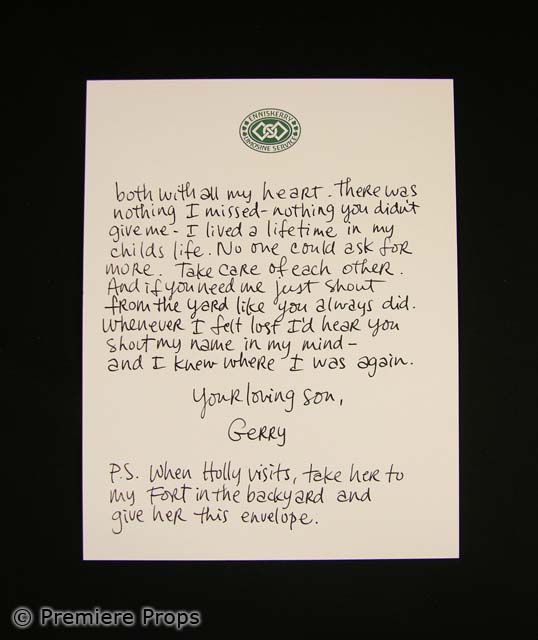 ENNISKERRY
LIMOSINE SERVICE
both with all my heart. There was
nothing I missed - nothing you didn't
give me - I lived a lifetime in my
childs life. No one could ask for
more. Take care of each other.
And if you need me just shout
from the yard like you always did.
Whenever I felt lost I'd hear you
shout my name in my mind -
and I knew where I was again.
Your loving son,
Gerry
P.S. When Holly visits, take her to
my Fort in the backyard and
give her this envelope.
© Premiere Props